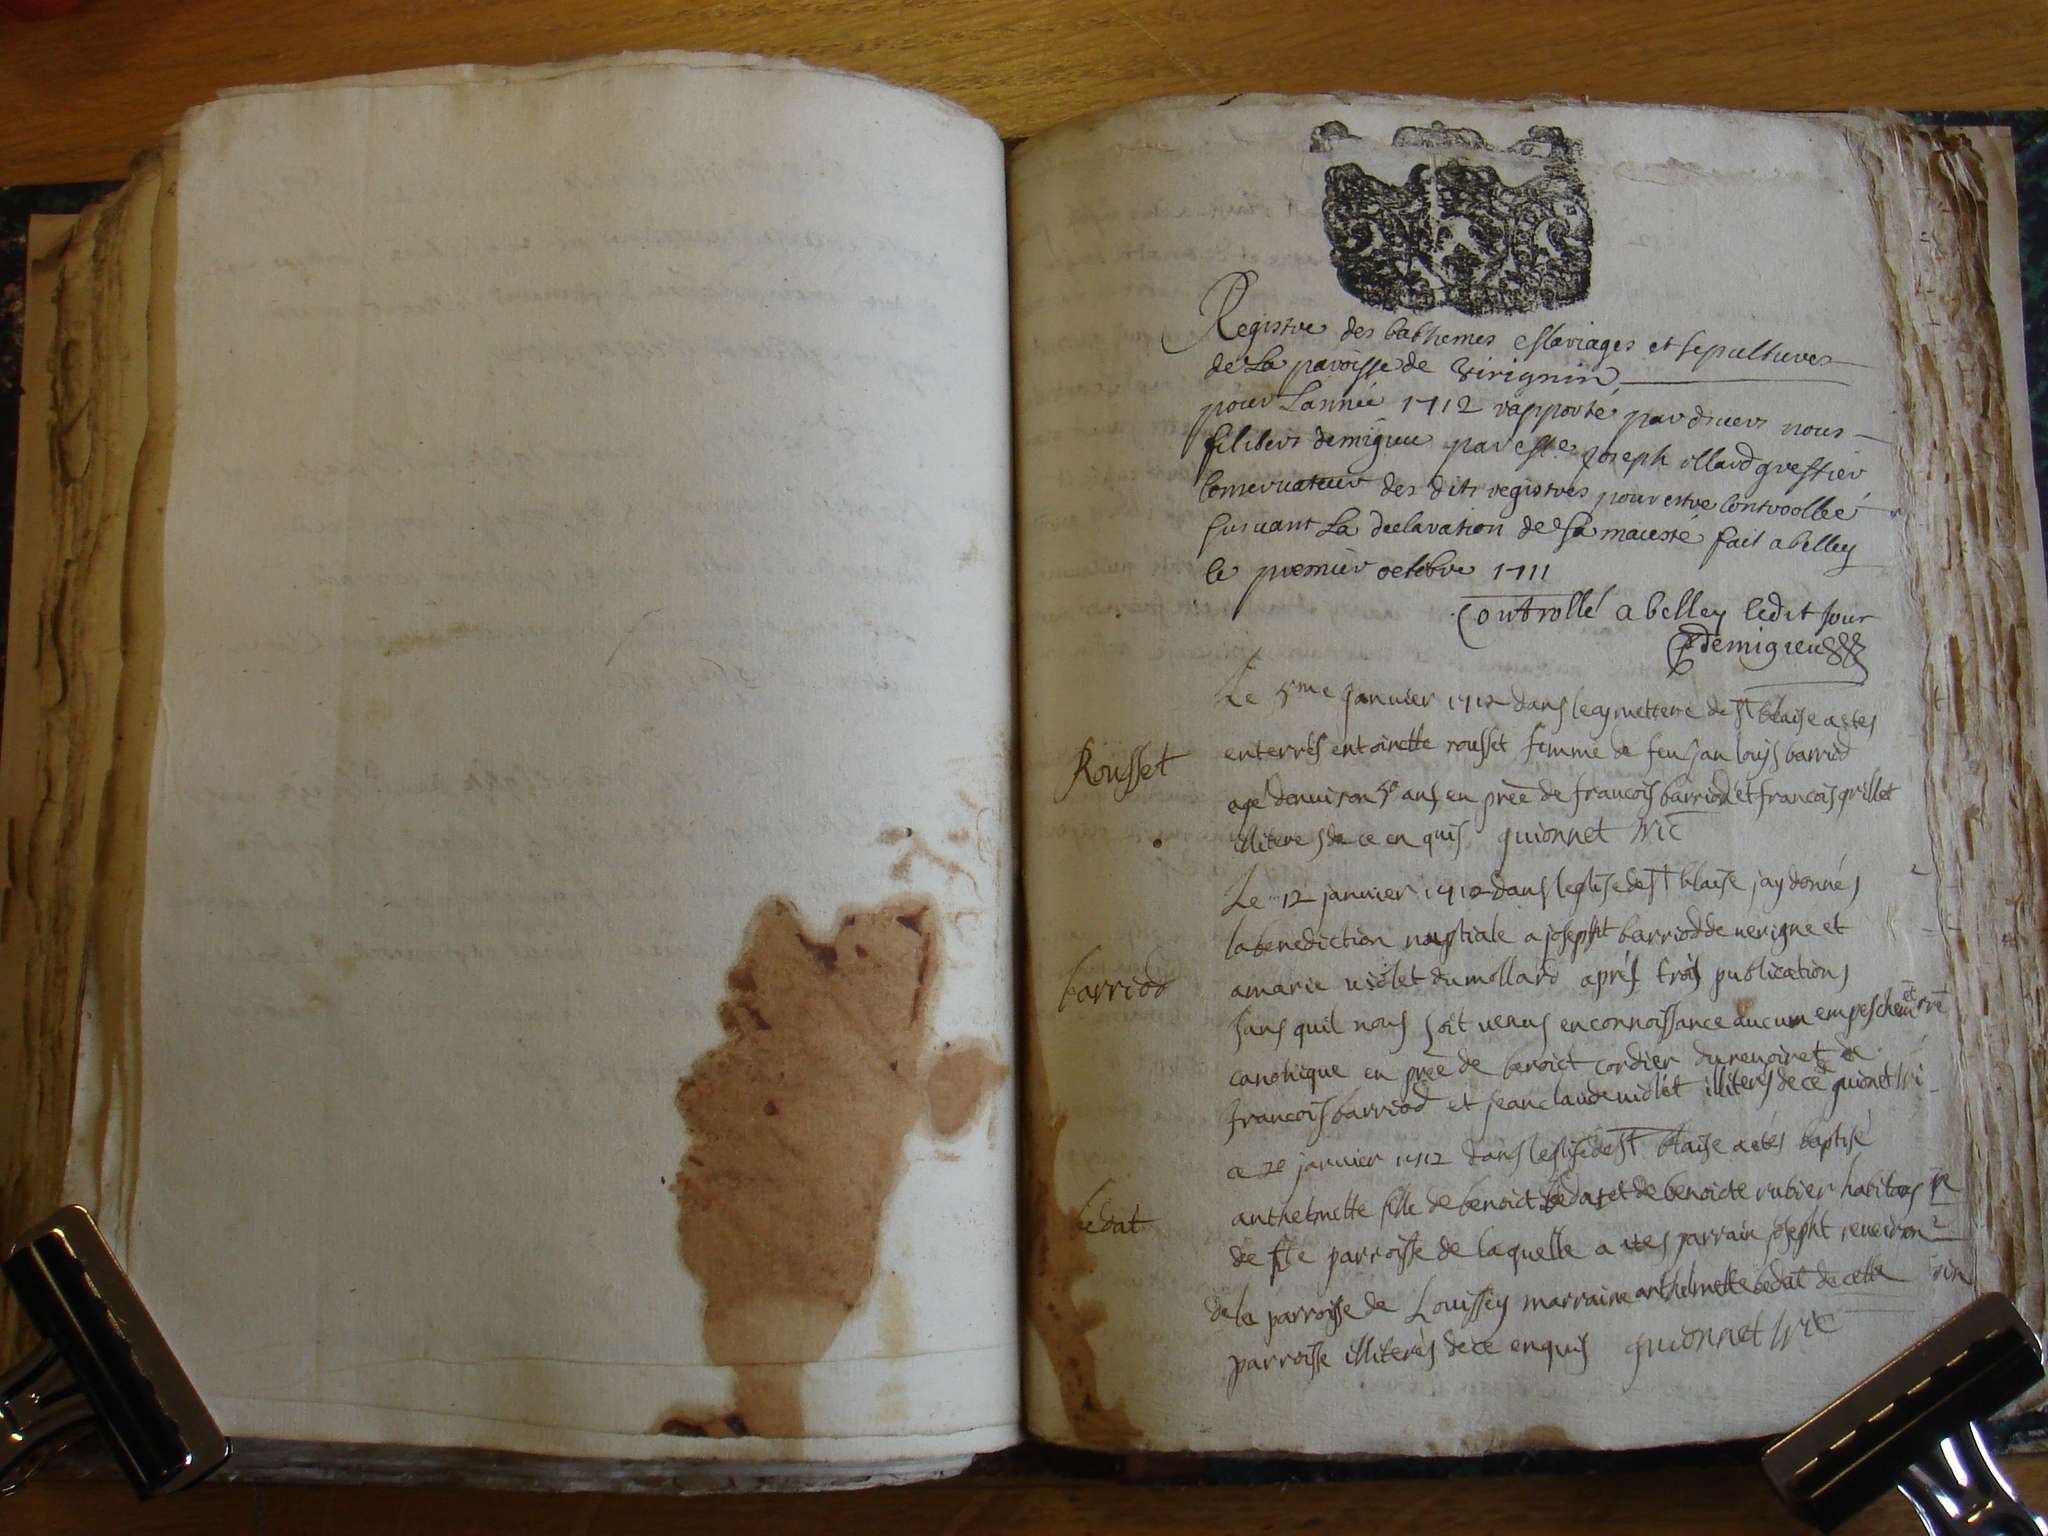 Registre des bathemes Mariages et sepultures
de La paroisse de Virignin
pour Lannée 1712 rapporté par divers nous
filibert demigieu par Me Joseph Mollard greffier
Conservateur des dits registres pour estre Controollée
suivant La declaration de Sa maiesté fait a belley
le premier octobre 1711
Controllé a belley ledit jour
demigieu
Le 5me janvier 1712 dans le cymettere de st blaise a etes
Rousset
enterrés entoinette rousset femme de feu jan louis barriod
agé denviron ans en prēē de francois barriod et francois grillet
illiteres de ce en quis guionnet vic
Le 12 janvier 1712 dans leglise de st blaise jay donnés
la benediction nuptiale a josepht barriod de verigne et
barriod
a marie violet du mollard aprés trois publications
sans quil nous soit venus en connoissance aucun empeschemt
canonique en prēē de benoict cordier du revoiret de
francois barriod et jean claude violét illiterés de ce guionet vi
a 20 janvier 1712 dans leglise de st blaise a etes baptisé
anthelmette fille de benoict bedat et de benoicte rubier habitans
bedat
de ste parroisse de laquelle a etes parrain josepht
de la parroisse de Louissey marraine anthelmette bedat de cette
parroisse illiterés de ce enquis guionnet vic